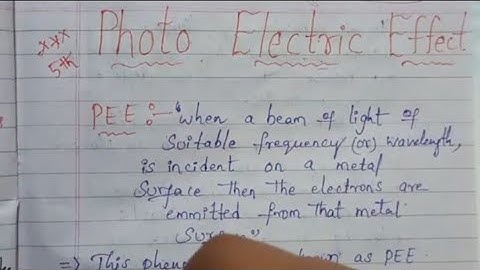 xxx
5th
Photo Electric Effect
PEE :- "when a beam of light of
Suitable frequency (or) wavelength,
is incident on a metal
Surface Then The electrons are
emmitted from That metal
=> This as PEE.